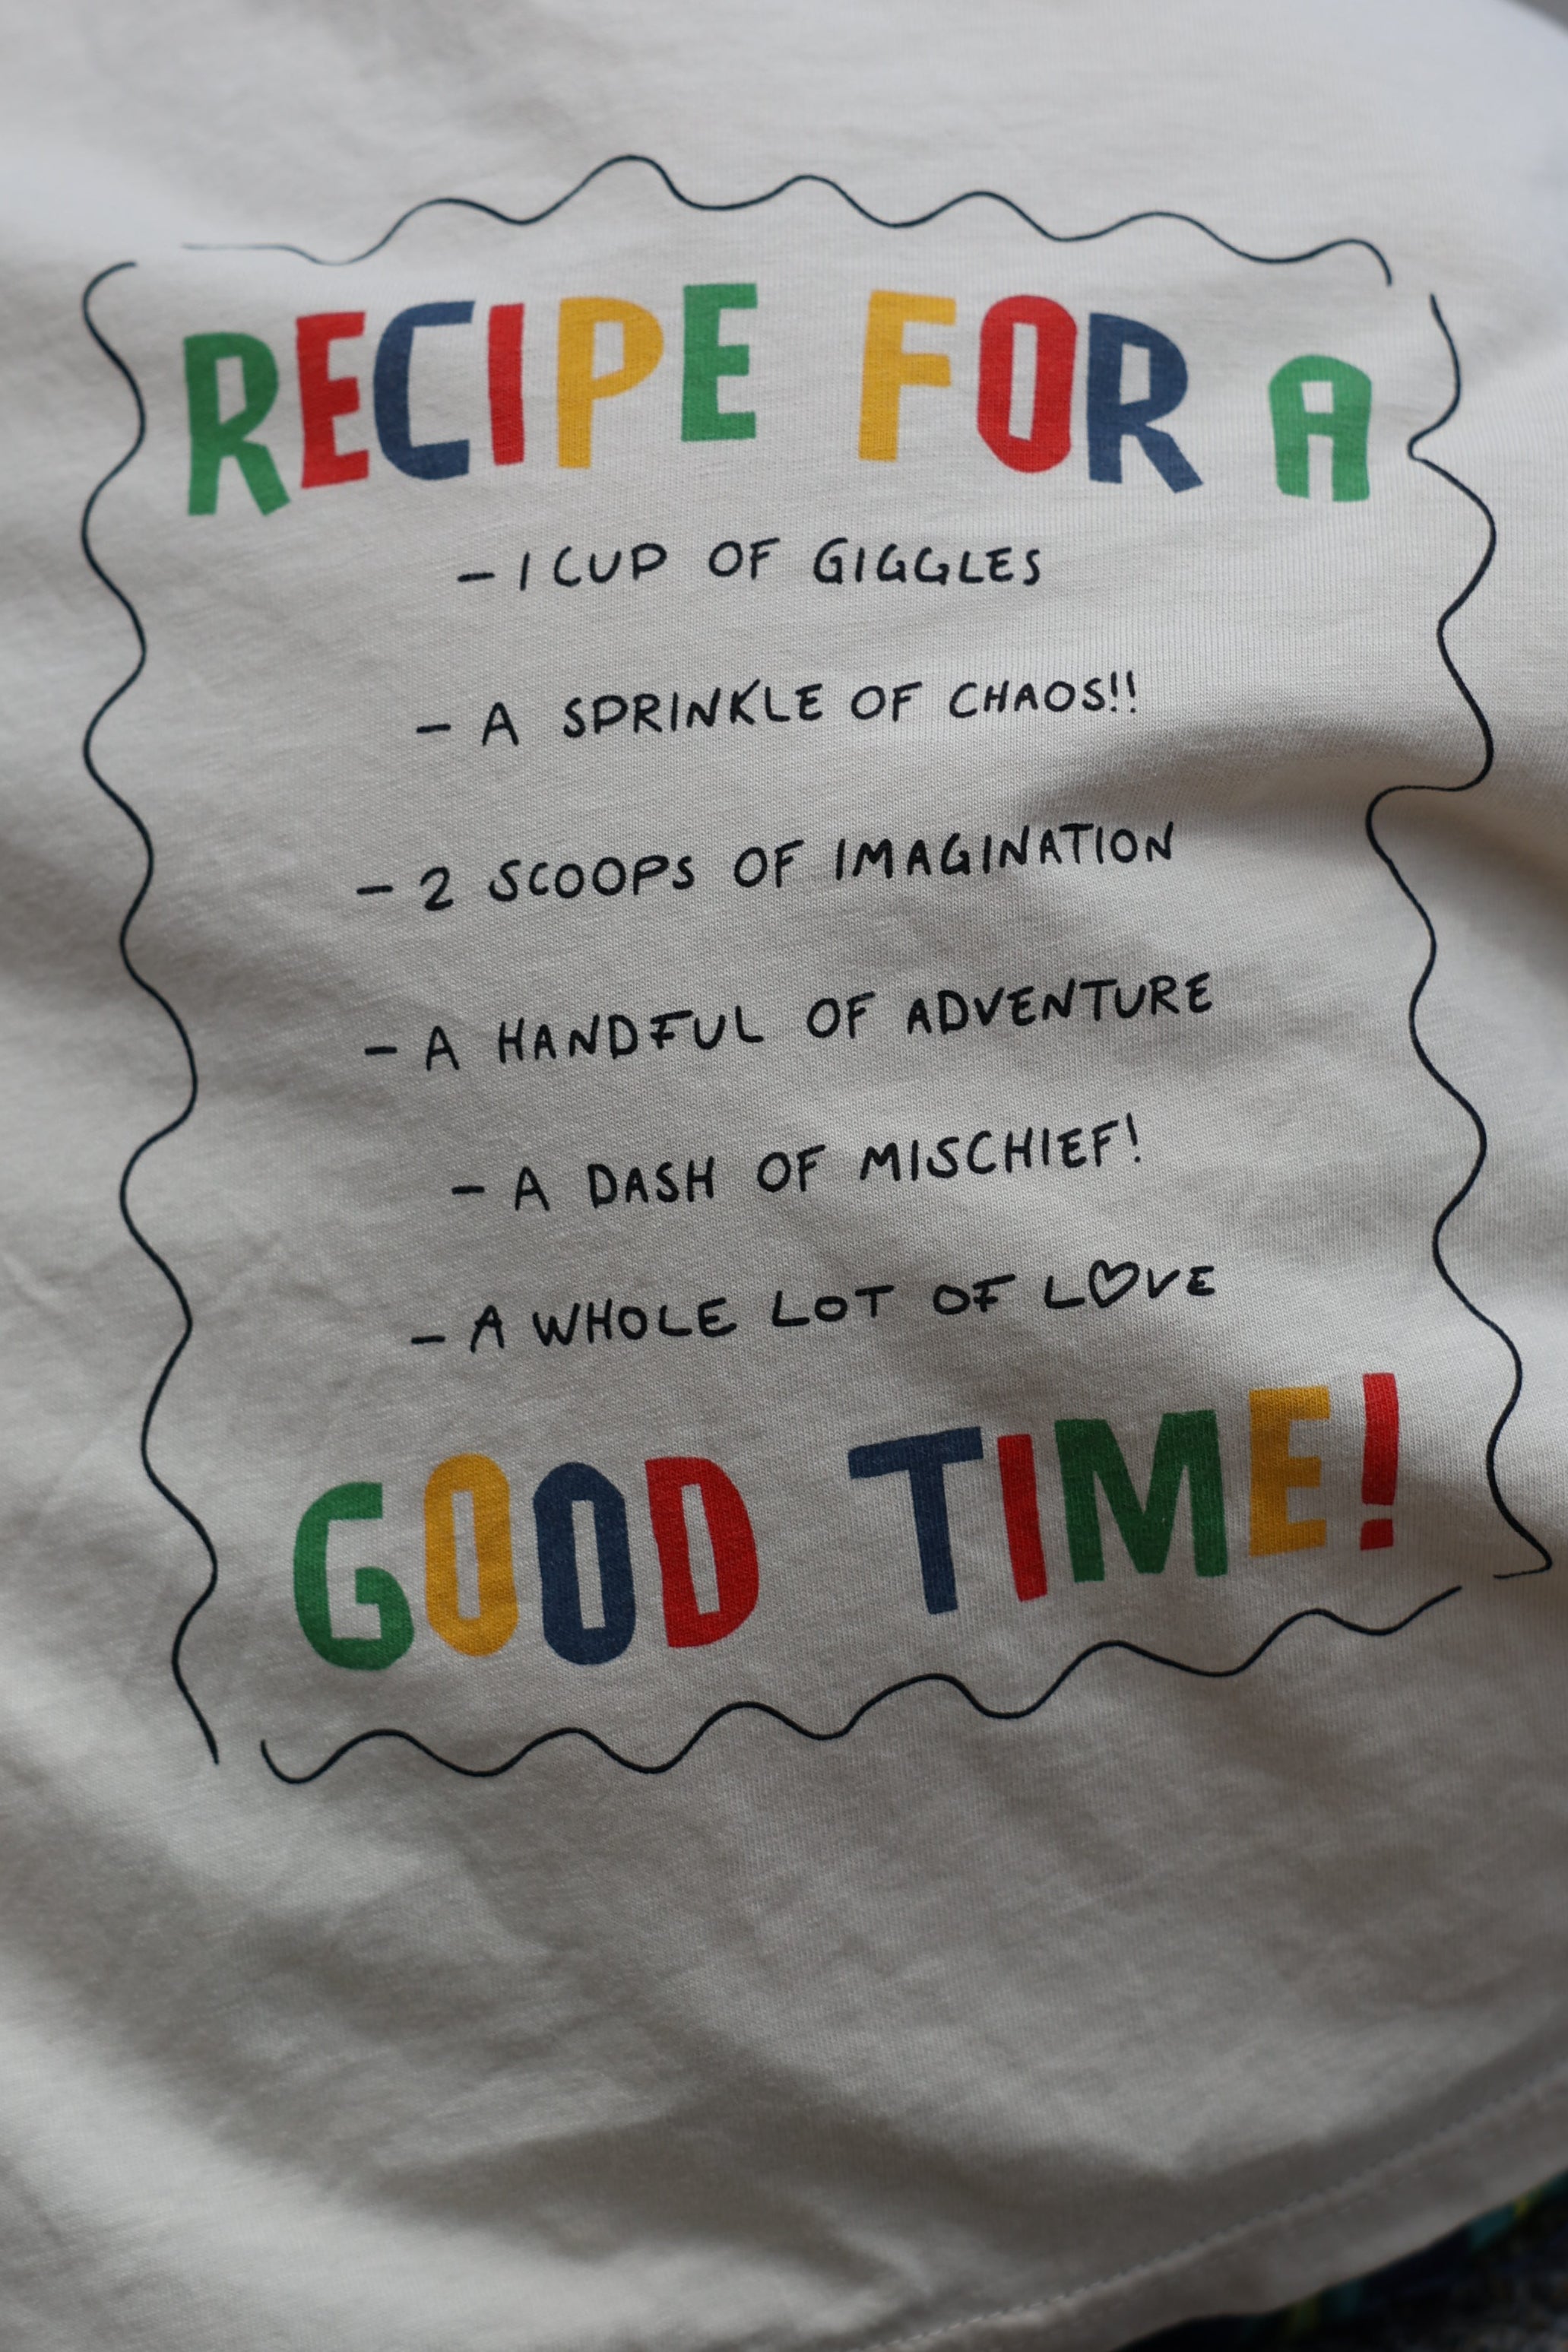 RECIPE FOR A
- 1 CUP OF GIGGLES
- A SPRINKLE OF CHAOS!!
- 2 SCOOPS OF IMAGINATION
- A HANDFUL OF ADVENTURE
- A DASH OF MISCHIEF!
- A WHOLE LOT OF L♡VE
GOOD TIME!